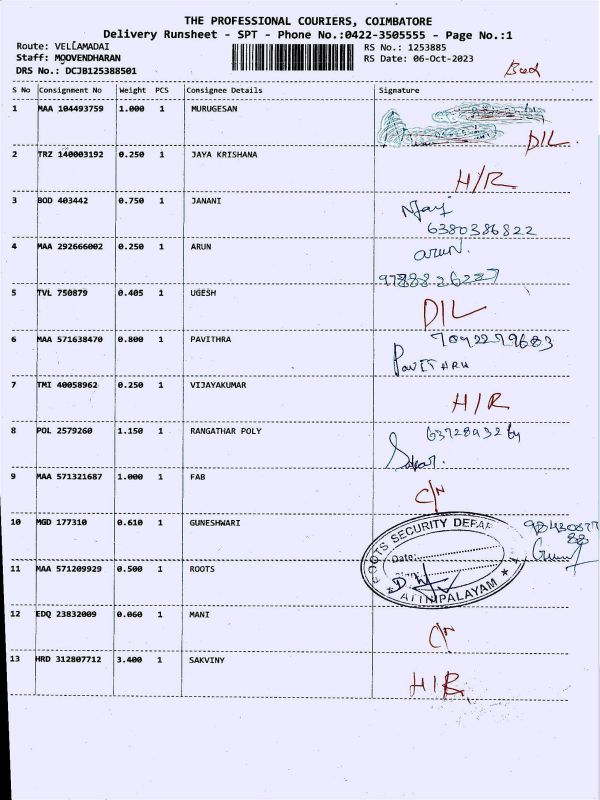 THE PROFESSIONAL COURIERS, COIMBATORE
Delivery Runsheet - SPT - Phone No.:0422-3505555 - Page No.:1
Route: VELLAMADAI RS No.: 1253885
Staff: MOOVENDHARAN RS Date: 06-Oct-2023
DRS No.: DCJB125388501
S No Consignment No Weight PCS Consignee Details Signature
1 MAA 104493759 1.000 1 MURUGESAN
D/L
2 TRZ 140003192 0.250 1 JAYA KRISHANA
H/R
3 BOD 403442 0.750 1 JANANI
6380386822
4 MAA 292666002 0.250 1 ARUN arun.
9788826227
5 TVL 750879 0.405 1 UGESH
D/L
6 MAA 571638470 0.800 1 PAVITHRA 7092279683
7 TMI 40058962 0.250 1 VIJAYAKUMAR
H/R
8 POL 2579260 1.150 1 RANGATHAR POLY
9 MAA 571321687 1.000 1 FAB
C/N
10 MGD 177310 0.610 1 GUNESHWARI
ROOTS SECURITY DEPAR
Date:
11 MAA 571209929 0.500 1 ROOTS
12 EDQ 23832009 0.060 1 MANI
C/N
13 HRD 312807712 3.400 1 SAKVINY
H/R